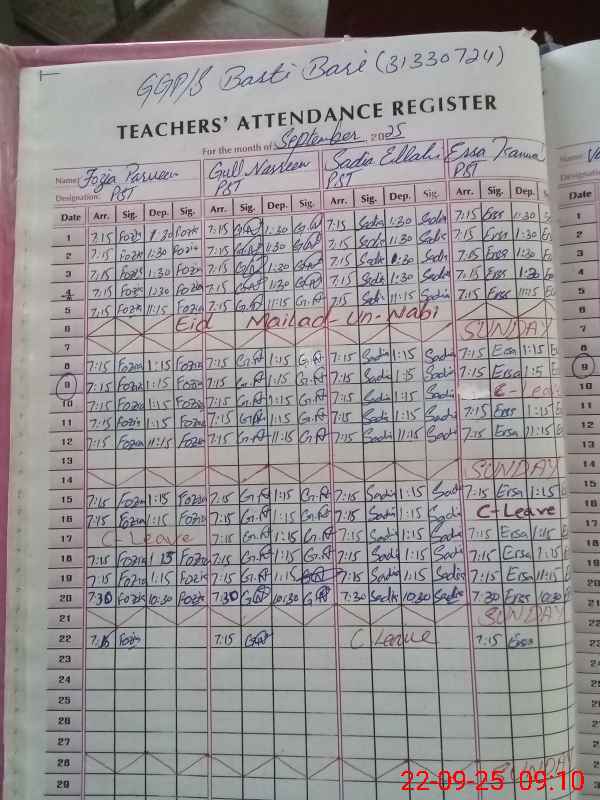 GGP/S Basti Bari (31330724)
TEACHERS' ATTENDANCE REGISTER
For the month of September 2025
Name: Fozia Parveen Gull Nasreen Sadia Ellahi Essa Kanwal
Designation: PST PST PST PST
Date Arr. Sig. Dep. Sig. Arr. Sig. Dep. Sig. Arr. Sig. Dep. Sig. Arr. Sig. Dep.
1 7:15 Fozia 1:30 Fozia 7:15 G.N 1:30 G.N 7:15 Sadia 1:30 Sadia 7:15 Essa 1:30
2 7:15 Fozia 1:30 Fozia 7:15 G.N 1:30 G.N 7:15 Sadia 1:30 Sadia 7:15 Essa 1:30
3 7:15 Fozia 1:30 Fozia 7:15 G.N 1:30 G.N 7:15 Sadia 1:30 Sadia 7:15 Essa 1:30
4 7:15 Fozia 1:30 Fozia 7:15 G.N 1:30 G.N 7:15 Sadia 1:30 Sadia 7:15 Essa 1:30
5 7:15 Fozia 11:15 Fozia 7:15 G.N 11:15 G.N 7:15 Sadi 11:15 Sadia 7:15 Essa 11:15
6 Eid Mailad-un-Nabi
7 SUNDAY
8 7:15 Fozia 1:15 Fozia 7:15 G.N 1:15 G.N 7:15 Sadia 1:15 Sadia 7:15 Essa 1:15
9 7:15 Fozia 1:15 Fozia 7:15 G.N 1:15 G.N 7:15 Sadia 1:15 Sadia 7:15 Essa 1:15
10 7:15 Fozia 1:15 Fozia 7:15 G.N 1:15 G.N 7:15 Sadia 1:15 Sadia C-Leave
11 7:15 Fozia 1:15 Fozia 7:15 G.N 1:15 G.N 7:15 Sadi 1:15 Sadia 7:15 Essa 1:15
12 7:15 Fozia 11:15 Fozia 7:15 G.N 11:15 G.N 7:15 Sadi 11:15 Sadi 7:15 Essa 11:15
13
14 SUNDAY
15 7:15 Fozia 1:15 Fozia 7:15 G.N 1:15 G.N 7:15 Sadia 1:15 Sadi 7:15 Essa 1:15
16 7:15 Fozia 1:15 Fozia 7:15 G.N 1:15 G.N 7:15 Sadia 1:15 Sadia C-Leave
17 C-Leave 7:15 G.N 1:15 G.N 7:15 Sadi 1:15 Sadia 7:15 Essa 1:15
18 7:15 Fozia 1:15 Fozia 7:15 G.N 1:15 G.N 7:15 Sadi 1:15 Sadi 7:15 Essa 1:15
19 7:15 Fozia 1:15 Fozia 7:15 G.N 1:15 7:15 Sadia 1:15 Sadia 7:15 Essa 11:15
20 7:30 Fozia 10:30 Fozia 7:30 G.N 10:30 G.N 7:30 Sadia 10:30 Sadia 7:30 Essa 10:30
21 SUNDAY
22 7:15 Fozia 7:15 G.N C Leave 7:15 Essa
23
24
25
26
27
28 SUNDAY
29
22-09-25 09.10
Name:
Designation
Date
1
2
3
4
5
6
7
8
9
10
11
12
13
14
15
16
17
18
19
20
21
22
23